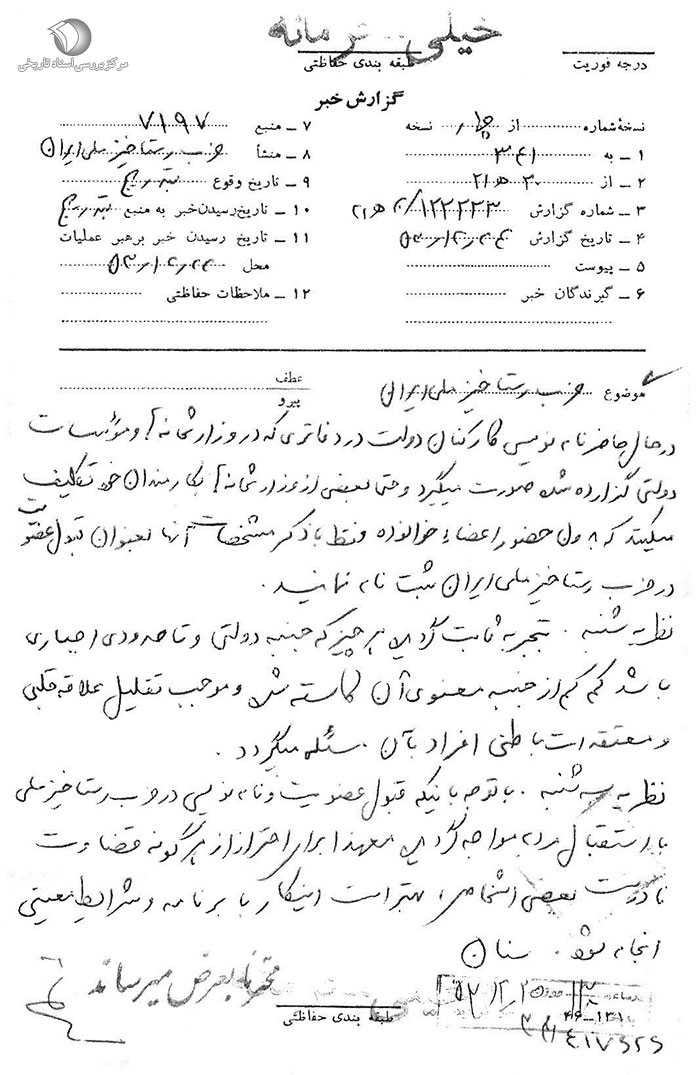 مرکز بررسی اسناد تاریخی
خیلی محرمانه
درجه فوریت
طبقه بندی حفاظتی
گزارش خبر
نسخهٔ شماره از چهار نسخه
۱ ـ به ۳۴۱
۲ ـ از ۲۰ ه ۲۱
۳ ـ شماره گزارش ۱۲۲۳۳ / ۲۰ ه ۲۱
۴ ـ تاریخ گزارش
۵ ـ پیوست
۶ ـ گیرندگان خبر
۷ ـ منبع ۷۱۹۷
۸ ـ منشأ حزب رستاخیز ملی ایران
۹ ـ تاریخ وقوع بتدریج
۱۰ ـ تاریخ رسیدن خبر به منبع بتدریج
۱۱ ـ تاریخ رسیدن خبر برهبر عملیات
محل
۱۲ ـ ملاحظات حفاظتی
موضوع حزب رستاخیز ملی ایران
عطف
پیرو
در حال حاضر نام نویسی کارکنان دولت در دفاتری که در وزارتخانه ها و مؤسسات
دولتی گزارده شده صورت میگیرد و حتی بعضی از وزارتخانه ها بکارمندان خود تکلیف
میکنند که بدون حضور اعضاء خانواده و فقط با ذکر مشخصات آنها بعنوان قبول عضویت
در حزب رستاخیز ملی ایران ثبت نام نمایند .
نظریه شنبه . تجربه ثابت گردیده هر چیز که جنبه دولتی و تا حدودی اجباری
باشد کم کم از جنبه معنوی آن کاسته شده و موجب تقلیل علاقه قلبی
و معتقدات باطنی افراد بآن مسئله میگردد .
نظریه سه شنبه . با توجه باینکه قبول عضویت و نام نویسی در حزب رستاخیز ملی
با استقبال مردم مواجه گردیده معهذا برای احتراز از هرگونه قضاوت
نادرست بعضی اشخاص ، بهتر است اینکار با برنامه و شرایط معینی
انجام شود . سنان
محترمانه بعرض میرساند
طبقه بندی حفاظتی